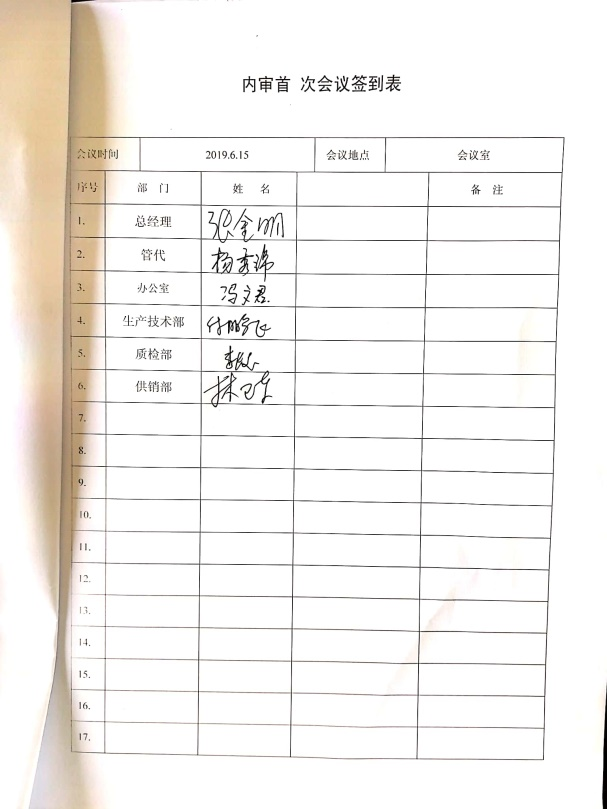 内审首 次会议签到表
会议时间 2019.6.15 会议地点 会议室
序号 部 门 姓 名 备 注
1. 总经理 张金明
2. 管代 杨秀锦
3. 办公室 冯文君
4. 生产技术部 付鹏飞
5. 质检部
6. 供销部 林卫东
7.
8.
9.
10.
11.
12.
13.
14.
15.
16.
17.